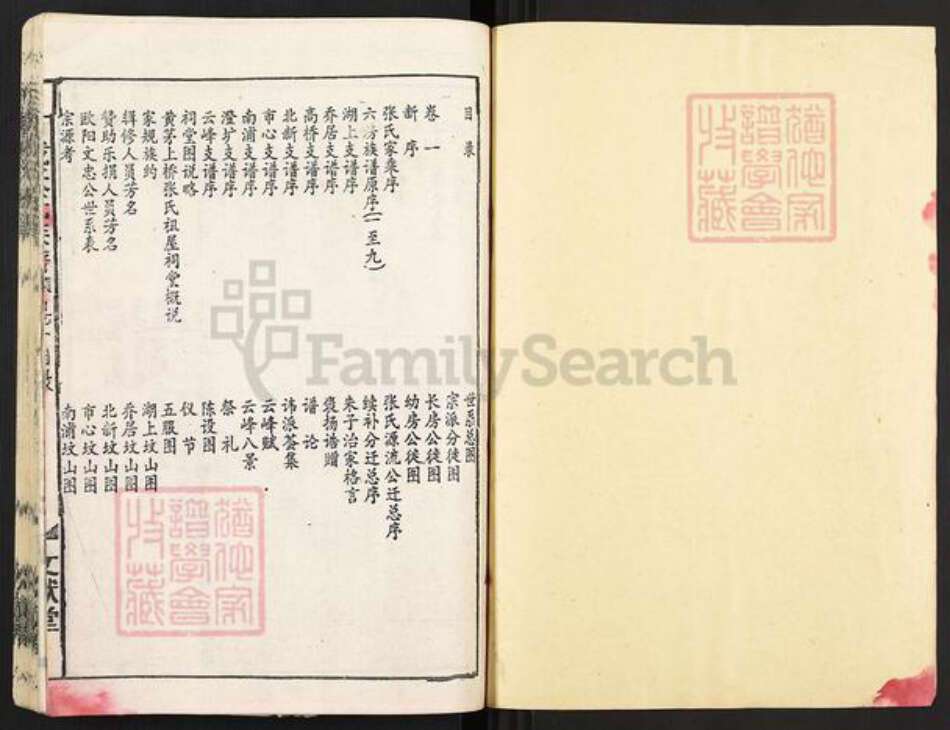 目录
卷一
新序
张氏家乘序
六房族谱原序(一至九)
湖上支谱序
乔居支谱序
高桥支谱序
北新支谱序
市心支谱序
南浦支谱序
澄圹支谱序
云峰支谱序
祠堂图说略
黄茅上桥张氏祖屋祠堂概说
家规族约
辑修人员芳名
赞助乐捐人员芳名
欧阳文忠公世系表
宗源考
世系总图
宗派分徒图
长房公徒图
幼房公徒图
张氏源流公迁总序
续补分迁总序
朱子治家格言
褒扬诰赠
谱论
讳派荟集
云峰赋
云峰八景
祭礼
陈设图
仪节
五服图
湖上坟山图
乔居坟山图
北新坟山图
市心坟山图
南浦坟山图
文献堂
犹他家
谱学会
收藏
犹他家
谱学会
收藏
FamilySearch